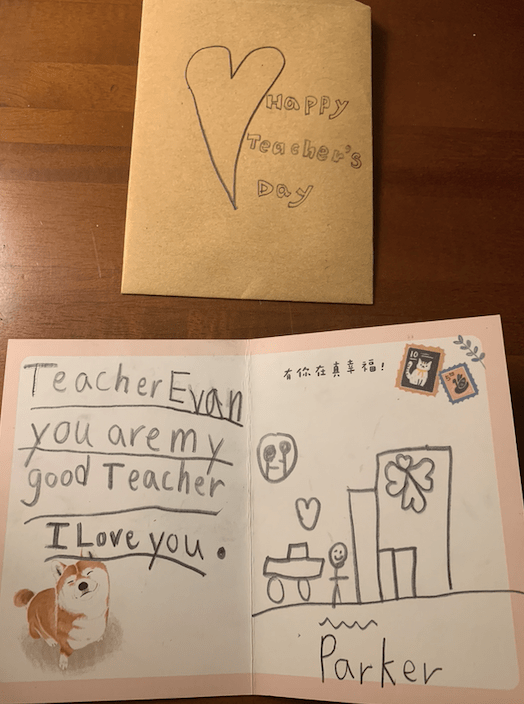 Happy
Teacher's
Day
Teacher Evan
you are my
good Teacher
I Love you.
有你在真幸福!
10
Parker